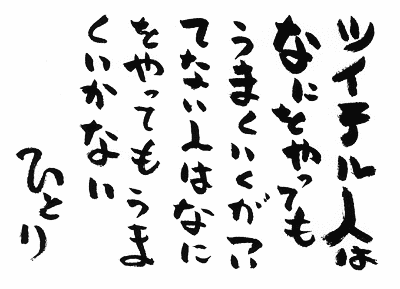 ツイテル人は
なにをやっても
うまくいくが ツイ
てない人はなに
をやってもうま
くいかない
ひとり